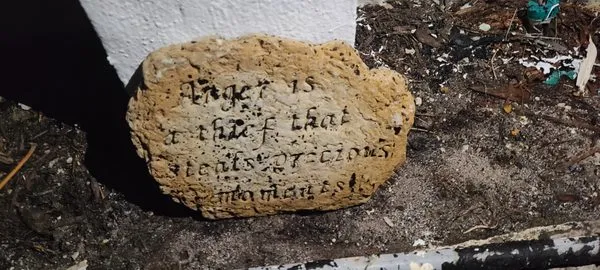 Anger is
a thief that
steals precious
moments